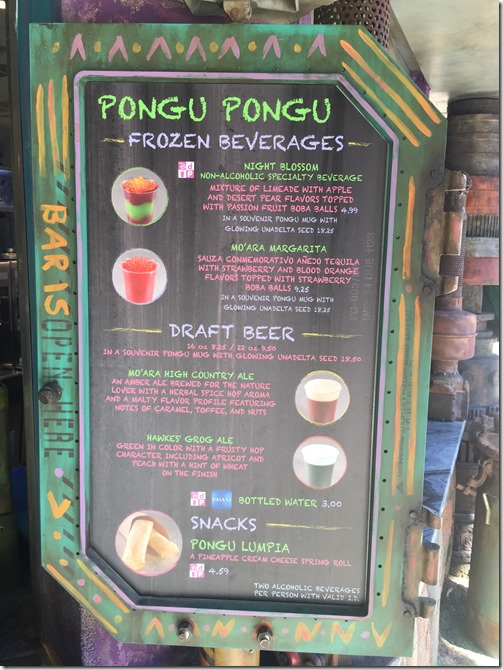 PONGU PONGU
FROZEN BEVERAGES
NIGHT BLOSSOM
NON-ALCOHOLIC SPECIALTY BEVERAGE
MIXTURE OF LIMEADE WITH APPLE
AND DESERT PEAR FLAVORS TOPPED
WITH PASSION FRUIT BOBA BALLS 4.99
IN A SOUVENIR PONGU MUG WITH
GLOWING UNADELTA SEED 18.25
MO'ARA MARGARITA
SAUZA CONMEMORATIVO AÑEJO TEQUILA
WITH STRAWBERRY AND BLOOD ORANGE
FLAVORS TOPPED WITH STRAWBERRY
BOBA BALLS 9.25
IN A SOUVENIR PONGU MUG WITH
GLOWING UNADELTA SEED 18.25
DRAFT BEER
16 oz 8.25 / 22 oz 9.50
IN A SOUVENIR PONGU MUG WITH GLOWING UNADELTA SEED 18.50
MO'ARA HIGH COUNTRY ALE
AN AMBER ALE BREWED FOR THE NATURE
LOVER WITH A HERBAL SPICE HOP AROMA
AND A MALTY FLAVOR PROFILE FEATURING
NOTES OF CARAMEL, TOFFEE, AND NUTS
HAWKES' GROG ALE
GREEN IN COLOR WITH A FRUITY HOP
CHARACTER INCLUDING APRICOT AND
PEACH WITH A HINT OF WHEAT
ON THE FINISH
DASANI
BOTTLED WATER 3.00
SNACKS
PONGU LUMPIA
A PINEAPPLE CREAM CHEESE SPRING ROLL
4.59
TWO ALCOHOLIC BEVERAGES
PER PERSON WITH VALID I.D.
BAR IS OPEN HERE